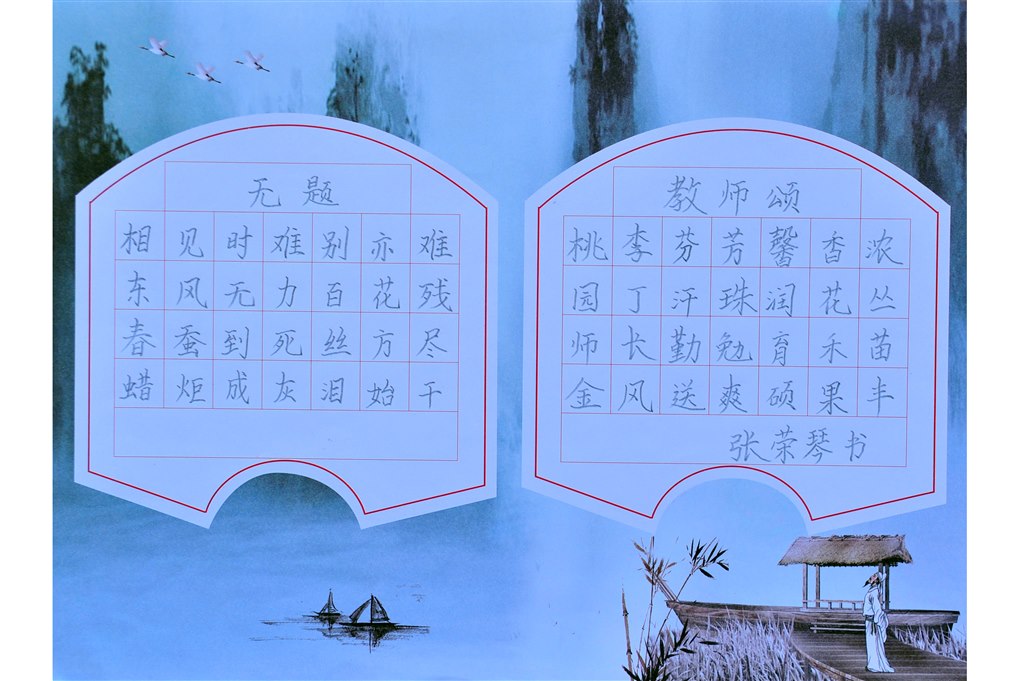 无题
相见时难别亦难
东风无力百花残
春蚕到死丝方尽
蜡炬成灰泪始干
教师颂
桃李芬芳馨香浓
园丁汗珠润花丛
师长勤勉育禾苗
金风送爽硕果丰
张荣琴书